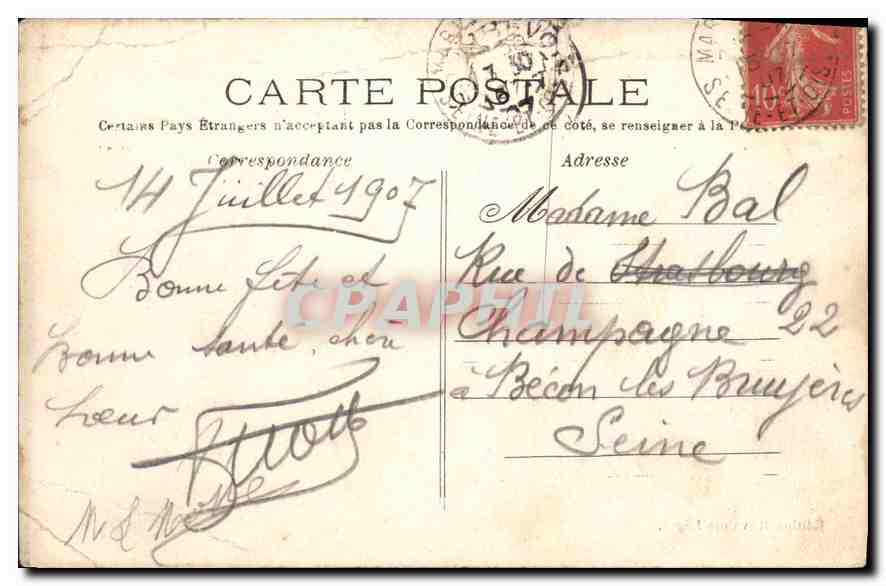 CARTE POSTALE
Certains Pays Étrangers n'acceptent pas la Correspondance de ce coté, se renseigner à la
Correspondance
Adresse
14 Juillet 1907
Bonne fête et
bonne santé, chère
sœur
Madame Bal
Rue de Strasbourg
Champagne 22
à Bécon les Bruyères
Seine
CPAPHIL
10c
POSTES
SEINE-ET-OISE